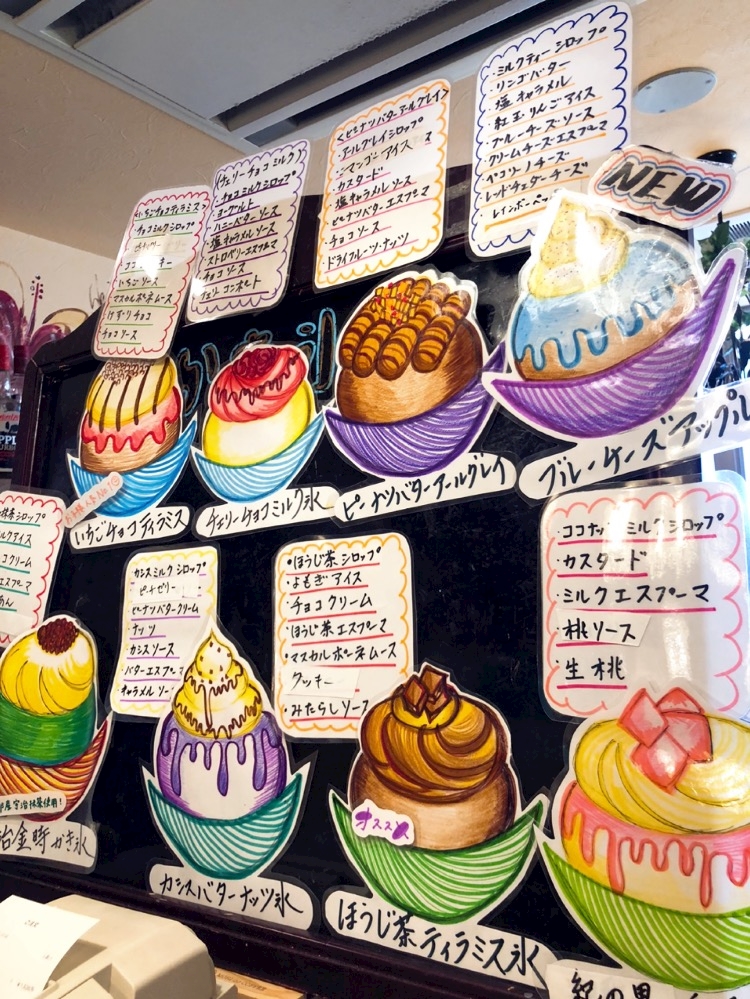 <いちごチョコティラミス>
・チョコミルクシロップ
いちごソース
・マスカルポーネムース
・けずりチョコ
・チョコソース
<チェリーチョコミルク>
・チョコミルクシロップ
・ヨーグルト
・ハニーバターソース
・塩キャラメルソース
・ストロベリーエスプーマ
・チョコソース
・チェリーコンポート
<ピーナツバターアールグレイ>
・アールグレイシロップ
・マンゴーアイス
・カスタード
・塩キャラメルソース
・ピーナツバターエスプーマ
・チョコソース
・ドライフルーツ・ナッツ
・ミルクティーシロップ
・リンゴバター
・塩キャラメル
・紅玉りんごアイス
・ブルーチーズソース
・クリームチーズエスプーマ
・ペコリーノチーズ
・レッドチェダーチーズ
NEW
いちごチョコティラミス
チェリーチョコミルク氷
ピーナツバターアールグレイ
ブルーチーズアップル
抹茶シロップ
ルクアイス
コクリーム
エスプーマ
あん
カシスミルクシロップ
ピーナツバタークリーム
・ナッツ
・カシスソース
・バターエスプーマ
キャラメルソー
・ほうじ茶シロップ
・よもぎアイス
・チョコクリーム
・ほうじ茶エスプーマ
・マスカルポーネムース
クッキー
・みたらしソース
・ココナッツミルクシロップ
・カスタード
・ミルクエスプーマ
・桃ソース
・生桃
宇治抹茶使用!
治金時かき氷
カシスバターナッツ氷
オススメ
ほうじ茶ティラミス氷